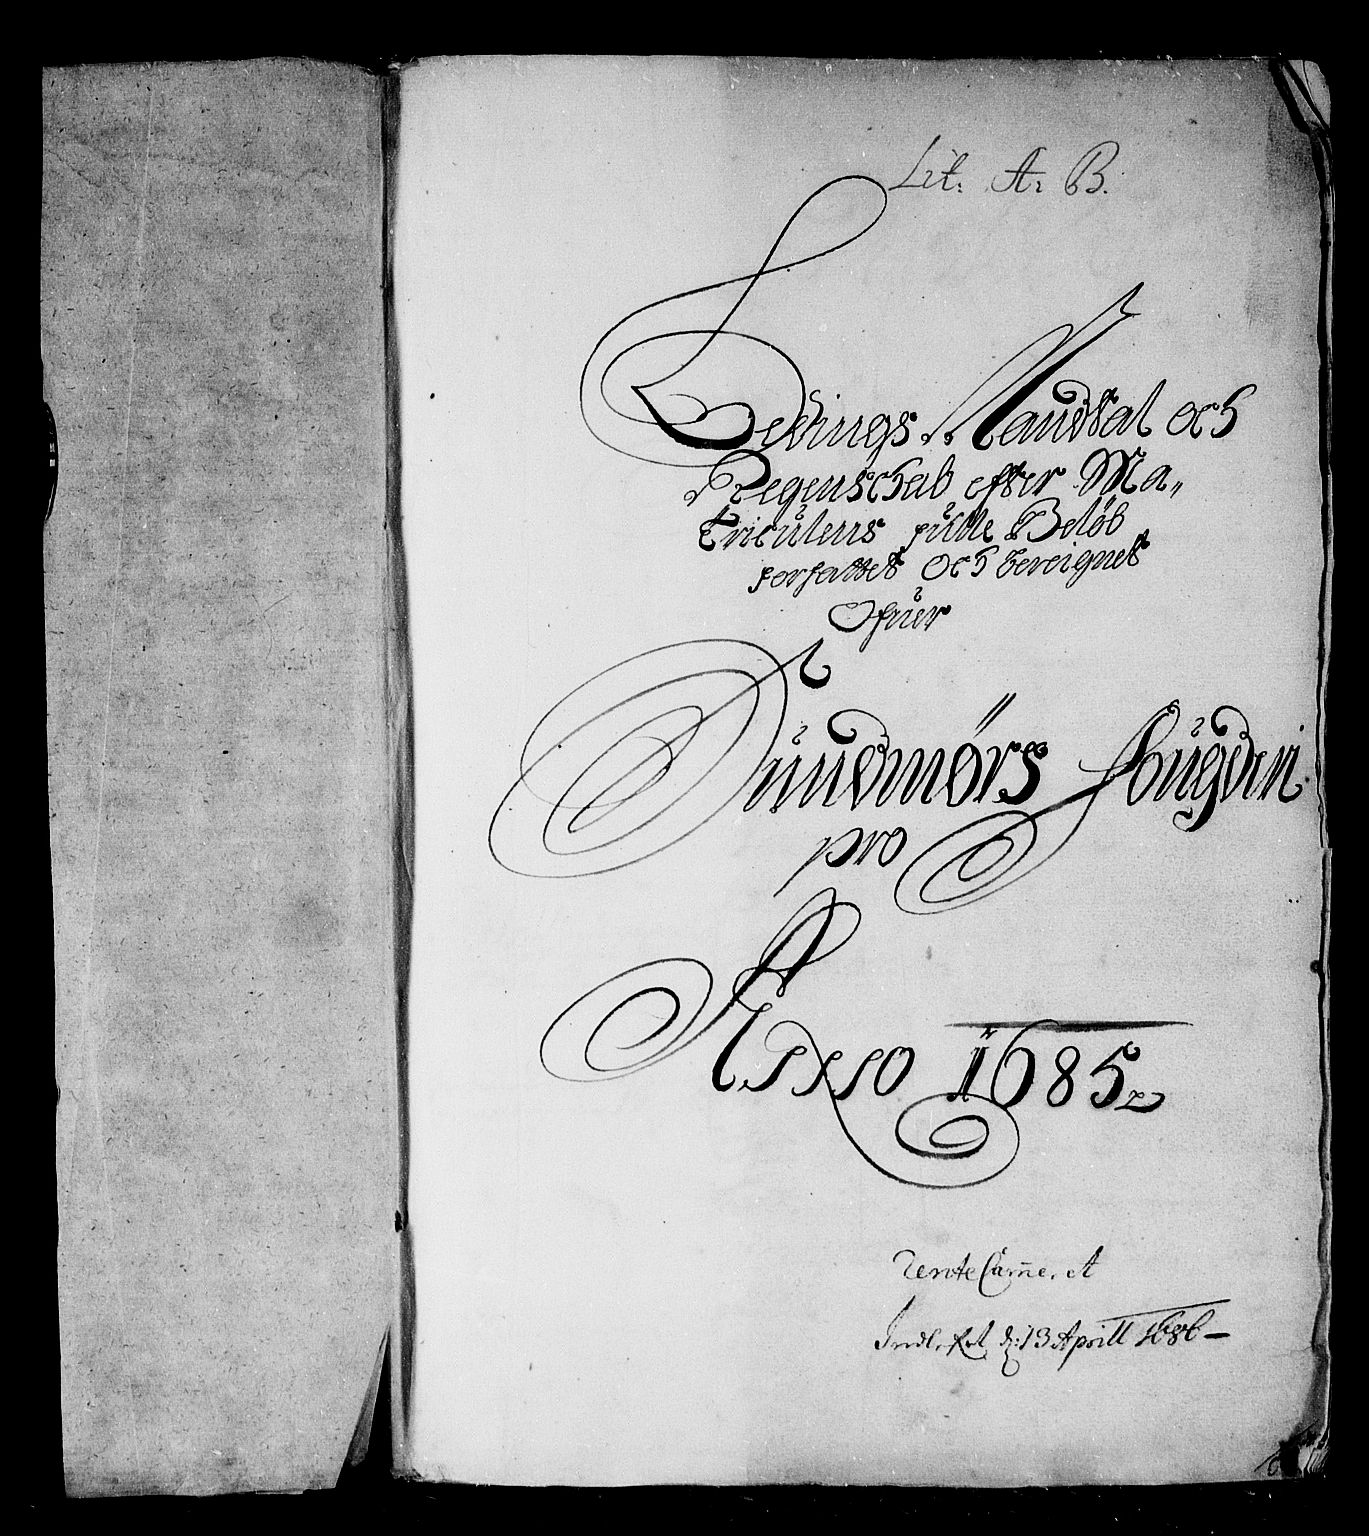 Lit: A: B.
Ledings Mandtal och
Regenschab efter Ma„
triculens fulde Beløb
forfattet Och bereignet
Ofuer
Sundmørs Fougderi
pro
Anno 1685
RenteCam̄eret
Indlefret d: 13 Aprill 1686